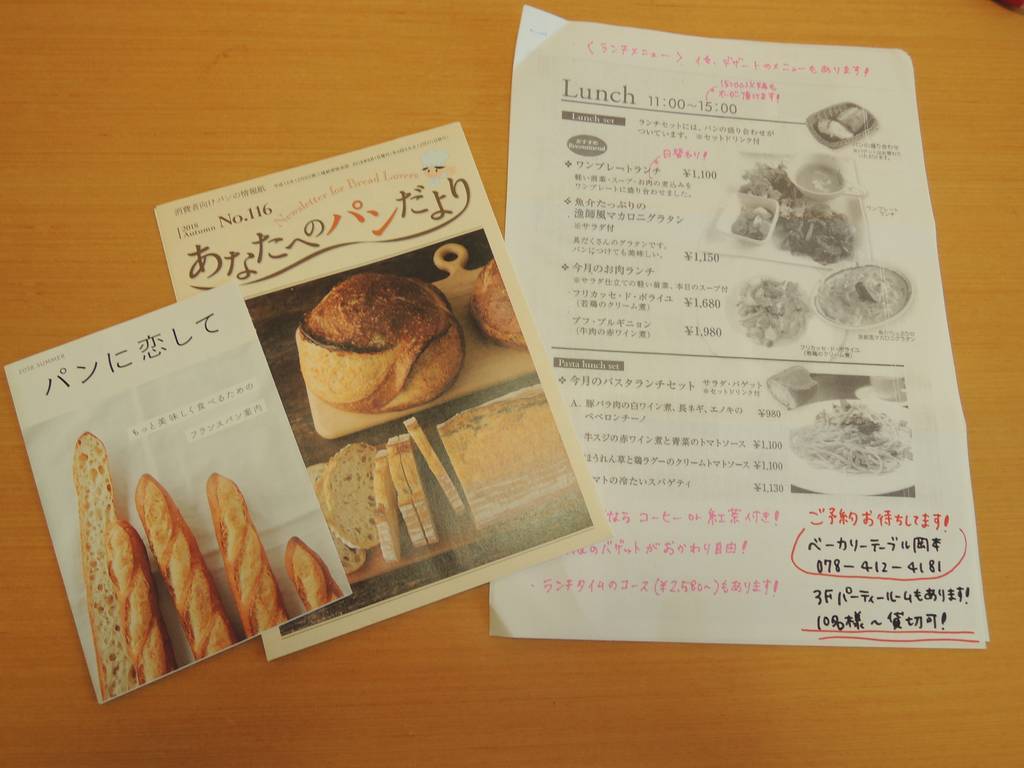 2018 SUMMER
パンに恋して
もっと美味しく食べるための
フランスパン案内
消費者向けパンの情報紙
2018
Autumn
No.116
Newsletter for Bread Lovers
あなたへのパンだより
〈ランチメニュー〉
デザートのメニューもあります!
Lunch 11:00～15:00
Lunch set
ランチセットには、パンの盛り合わせが
ついています。 ※セットドリンク付
おすすめ
Recommend
日替わり!
❖ ワンプレートランチ ¥1,100
軽い前菜・スープ・お肉の煮込みを
ワンプレートに盛り合わせました。
❖ 魚介たっぷりの
漁師風マカロニグラタン
※サラダ付
具だくさんのグラタンです。
パンにつけても美味しい。 ¥1,150
❖ 今月のお肉ランチ
※サラダ仕立ての軽い前菜、本日のスープ付
フリカッセ・ド・ボライユ ¥1,680
(若鶏のクリーム煮)
ブフ・ブルギニョン ¥1,980
(牛肉の赤ワイン煮)
パンの盛り合わせ
ワンプレート
ランチ
魚介たっぷりの
漁師風マカロニグラタン
フリカッセ・ド・ボライユ
(若鶏のクリーム煮)
Pasta lunch set
❖ 今月のパスタランチセット サラダ・バゲット
※セットドリンク付
A. 豚バラ肉の白ワイン煮、長ネギ、エノキの
ペペロンチーノ ¥980
牛スジの赤ワイン煮と青菜のトマトソース ¥1,100
ほうれん草と鶏ラグーのクリームトマトソース ¥1,100
マトの冷たいスパゲティ ¥1,130
なら コーヒー or 紅茶付き!
のバゲットがおかわり自由!
・ランチタイムのコース(¥2,580～)もあります!
ご予約お待ちしてます!
ベーカリーテーブル岡本
078-412-4181
3F パーティールームもあります!
10名様～貸切可!